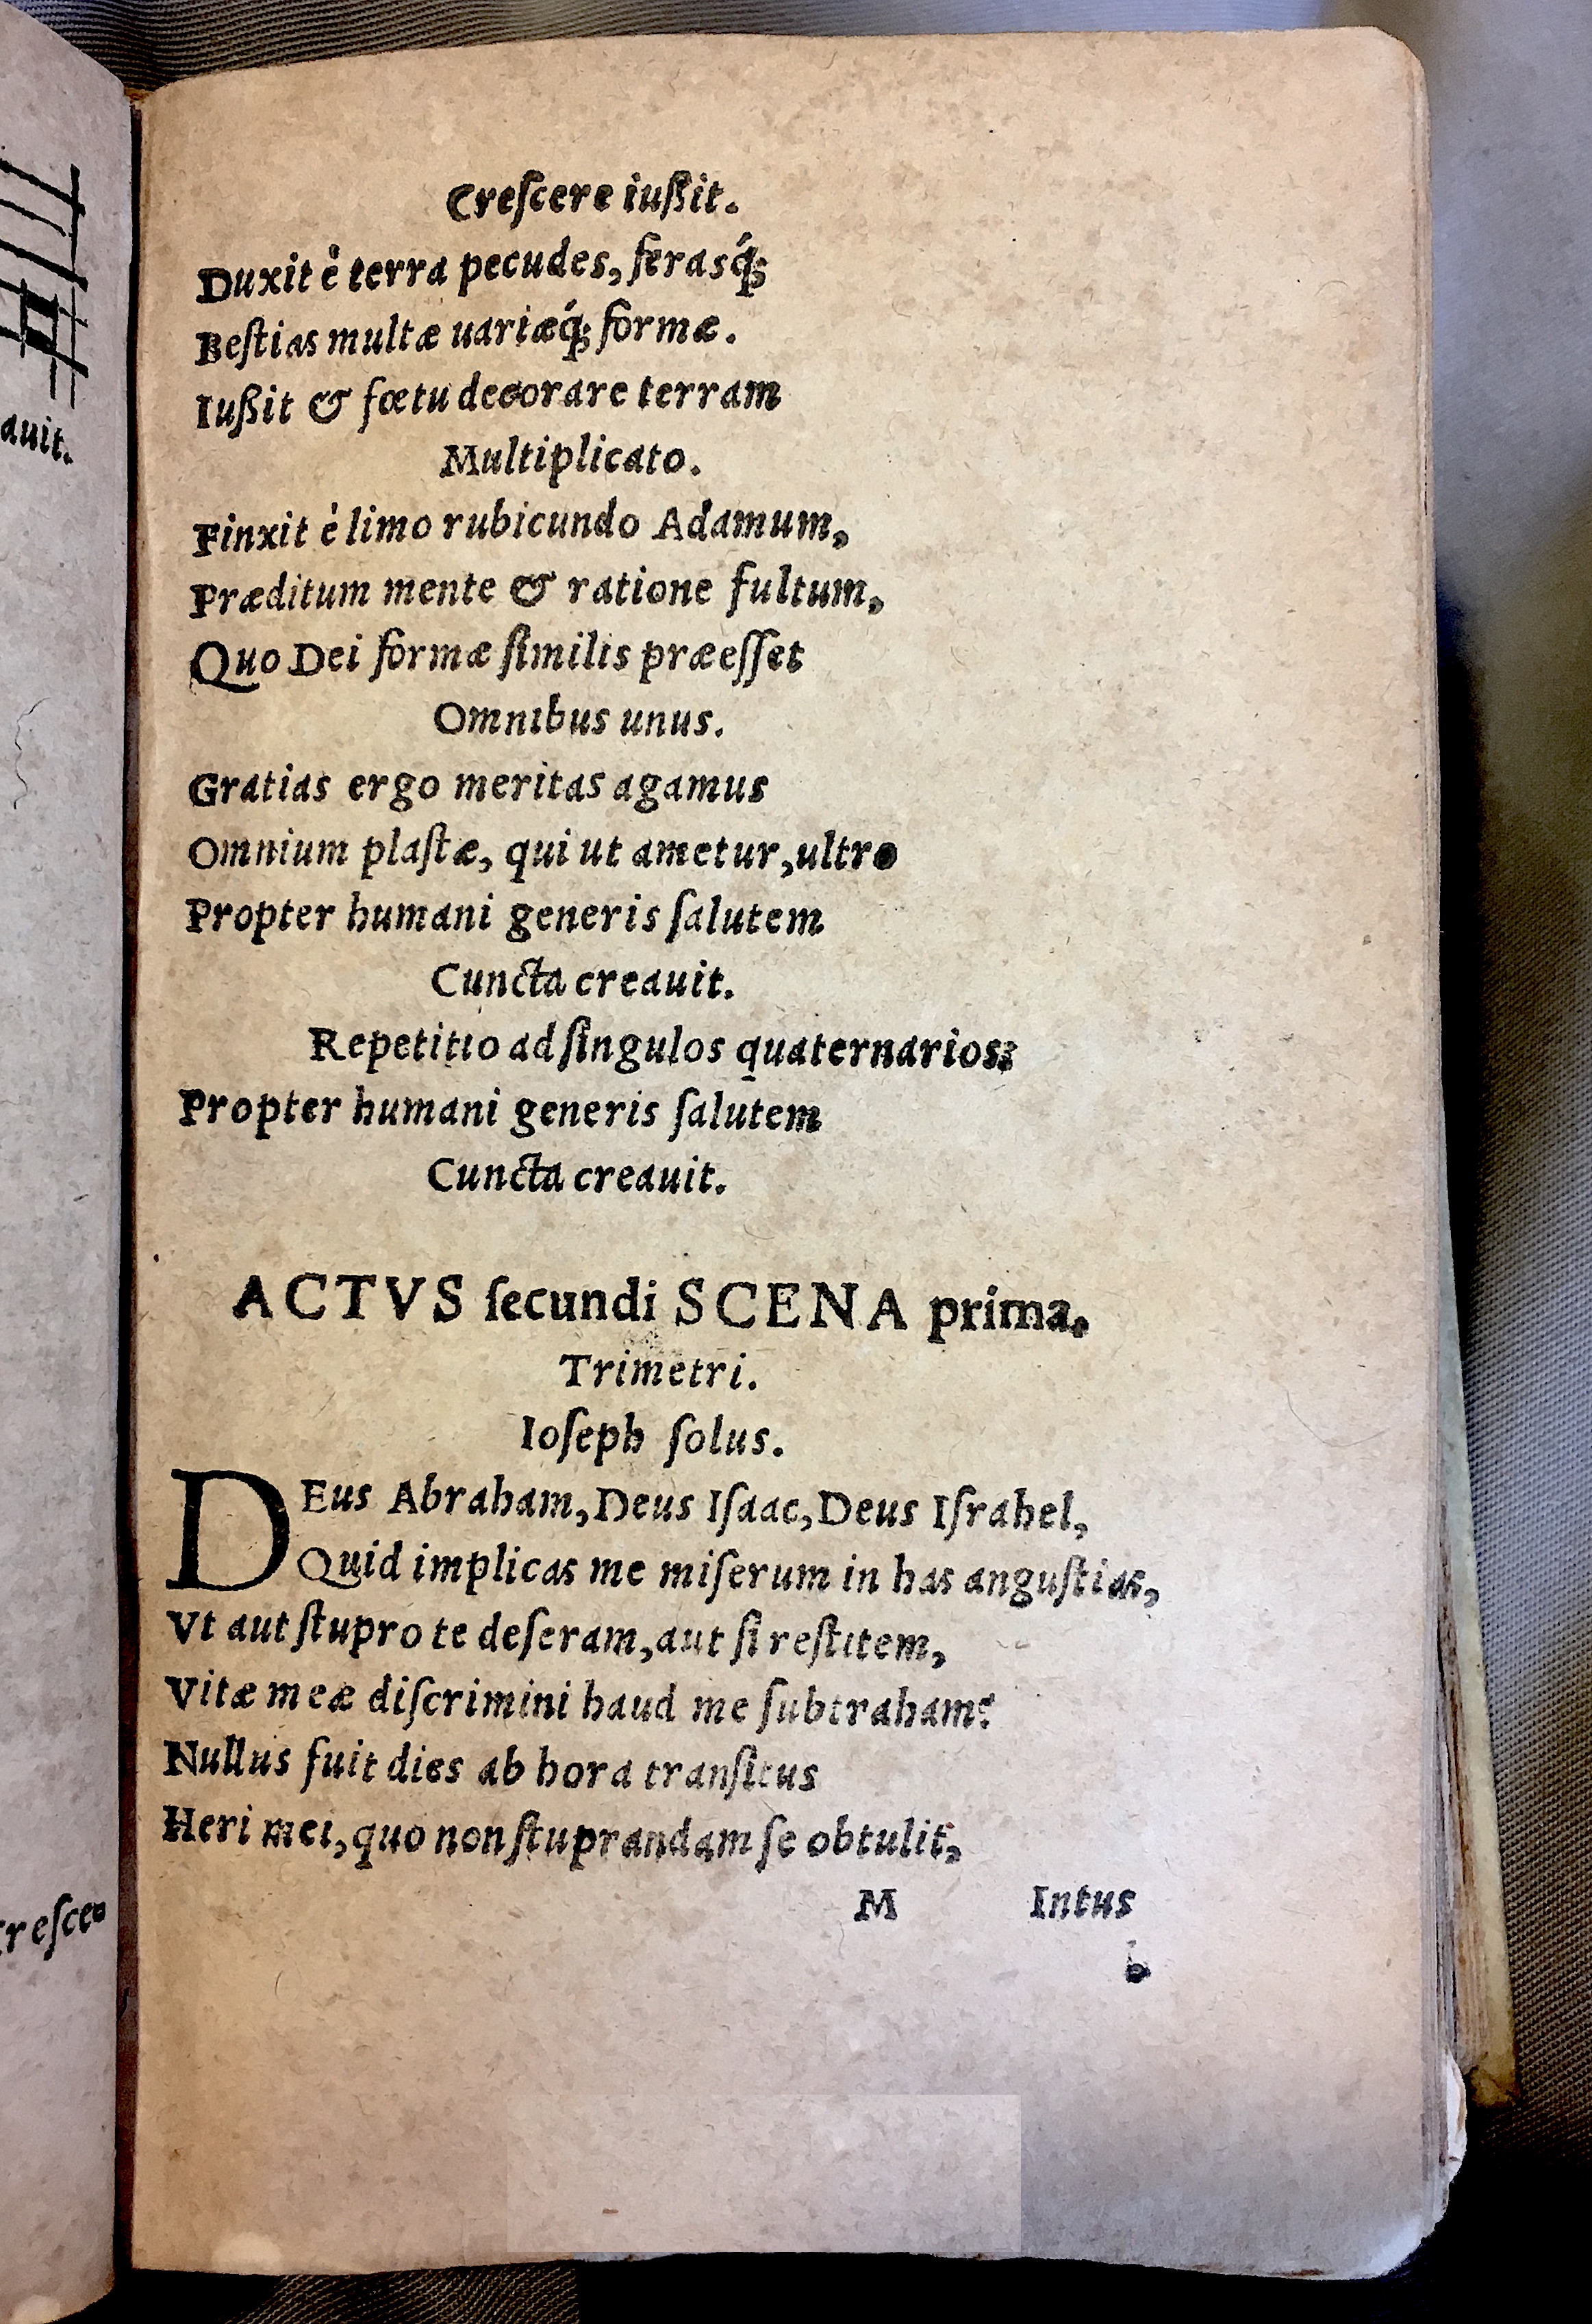 auit.
resce=
Creſcere iußit.
Duxit è terra pecudes, ferasq́;
Beſtias multæ uariæq́; formæ.
Iußit & fœtu decorare terram
Multiplicato.
Finxit è limo rubicundo Adamum,
Præditum mente & ratione fultum,
Quo Dei formæ ſimilis præeſſet
Omnibus unus.
Gratias ergo meritas agamus
Omnium plaſtæ, qui ut ametur, ultro
Propter humani generis ſalutem
Cuncta creauit.
Repetitio ad ſingulos quaternarios:
Propter humani generis ſalutem
Cuncta creauit.
ACTVS ſecundi SCENA prima.
Trimetri.
Ioſeph ſolus.
DEus Abraham, Deus Iſaac, Deus Iſrahel,
Quid implicas me miſerum in has anguſtias,
Vt aut ſtupro te deſeram, aut ſi reſtitem,
Vitæ meæ diſcrimini haud me ſubtraham?
Nullus fuit dies ab hora tranſitus
Heri mei, quo non ſtuprandam ſe obtulit,
M Intus
b